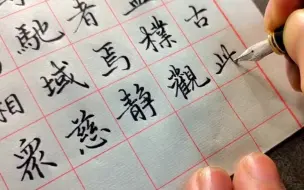 馳者
域焉樸古
衆慈静觀此